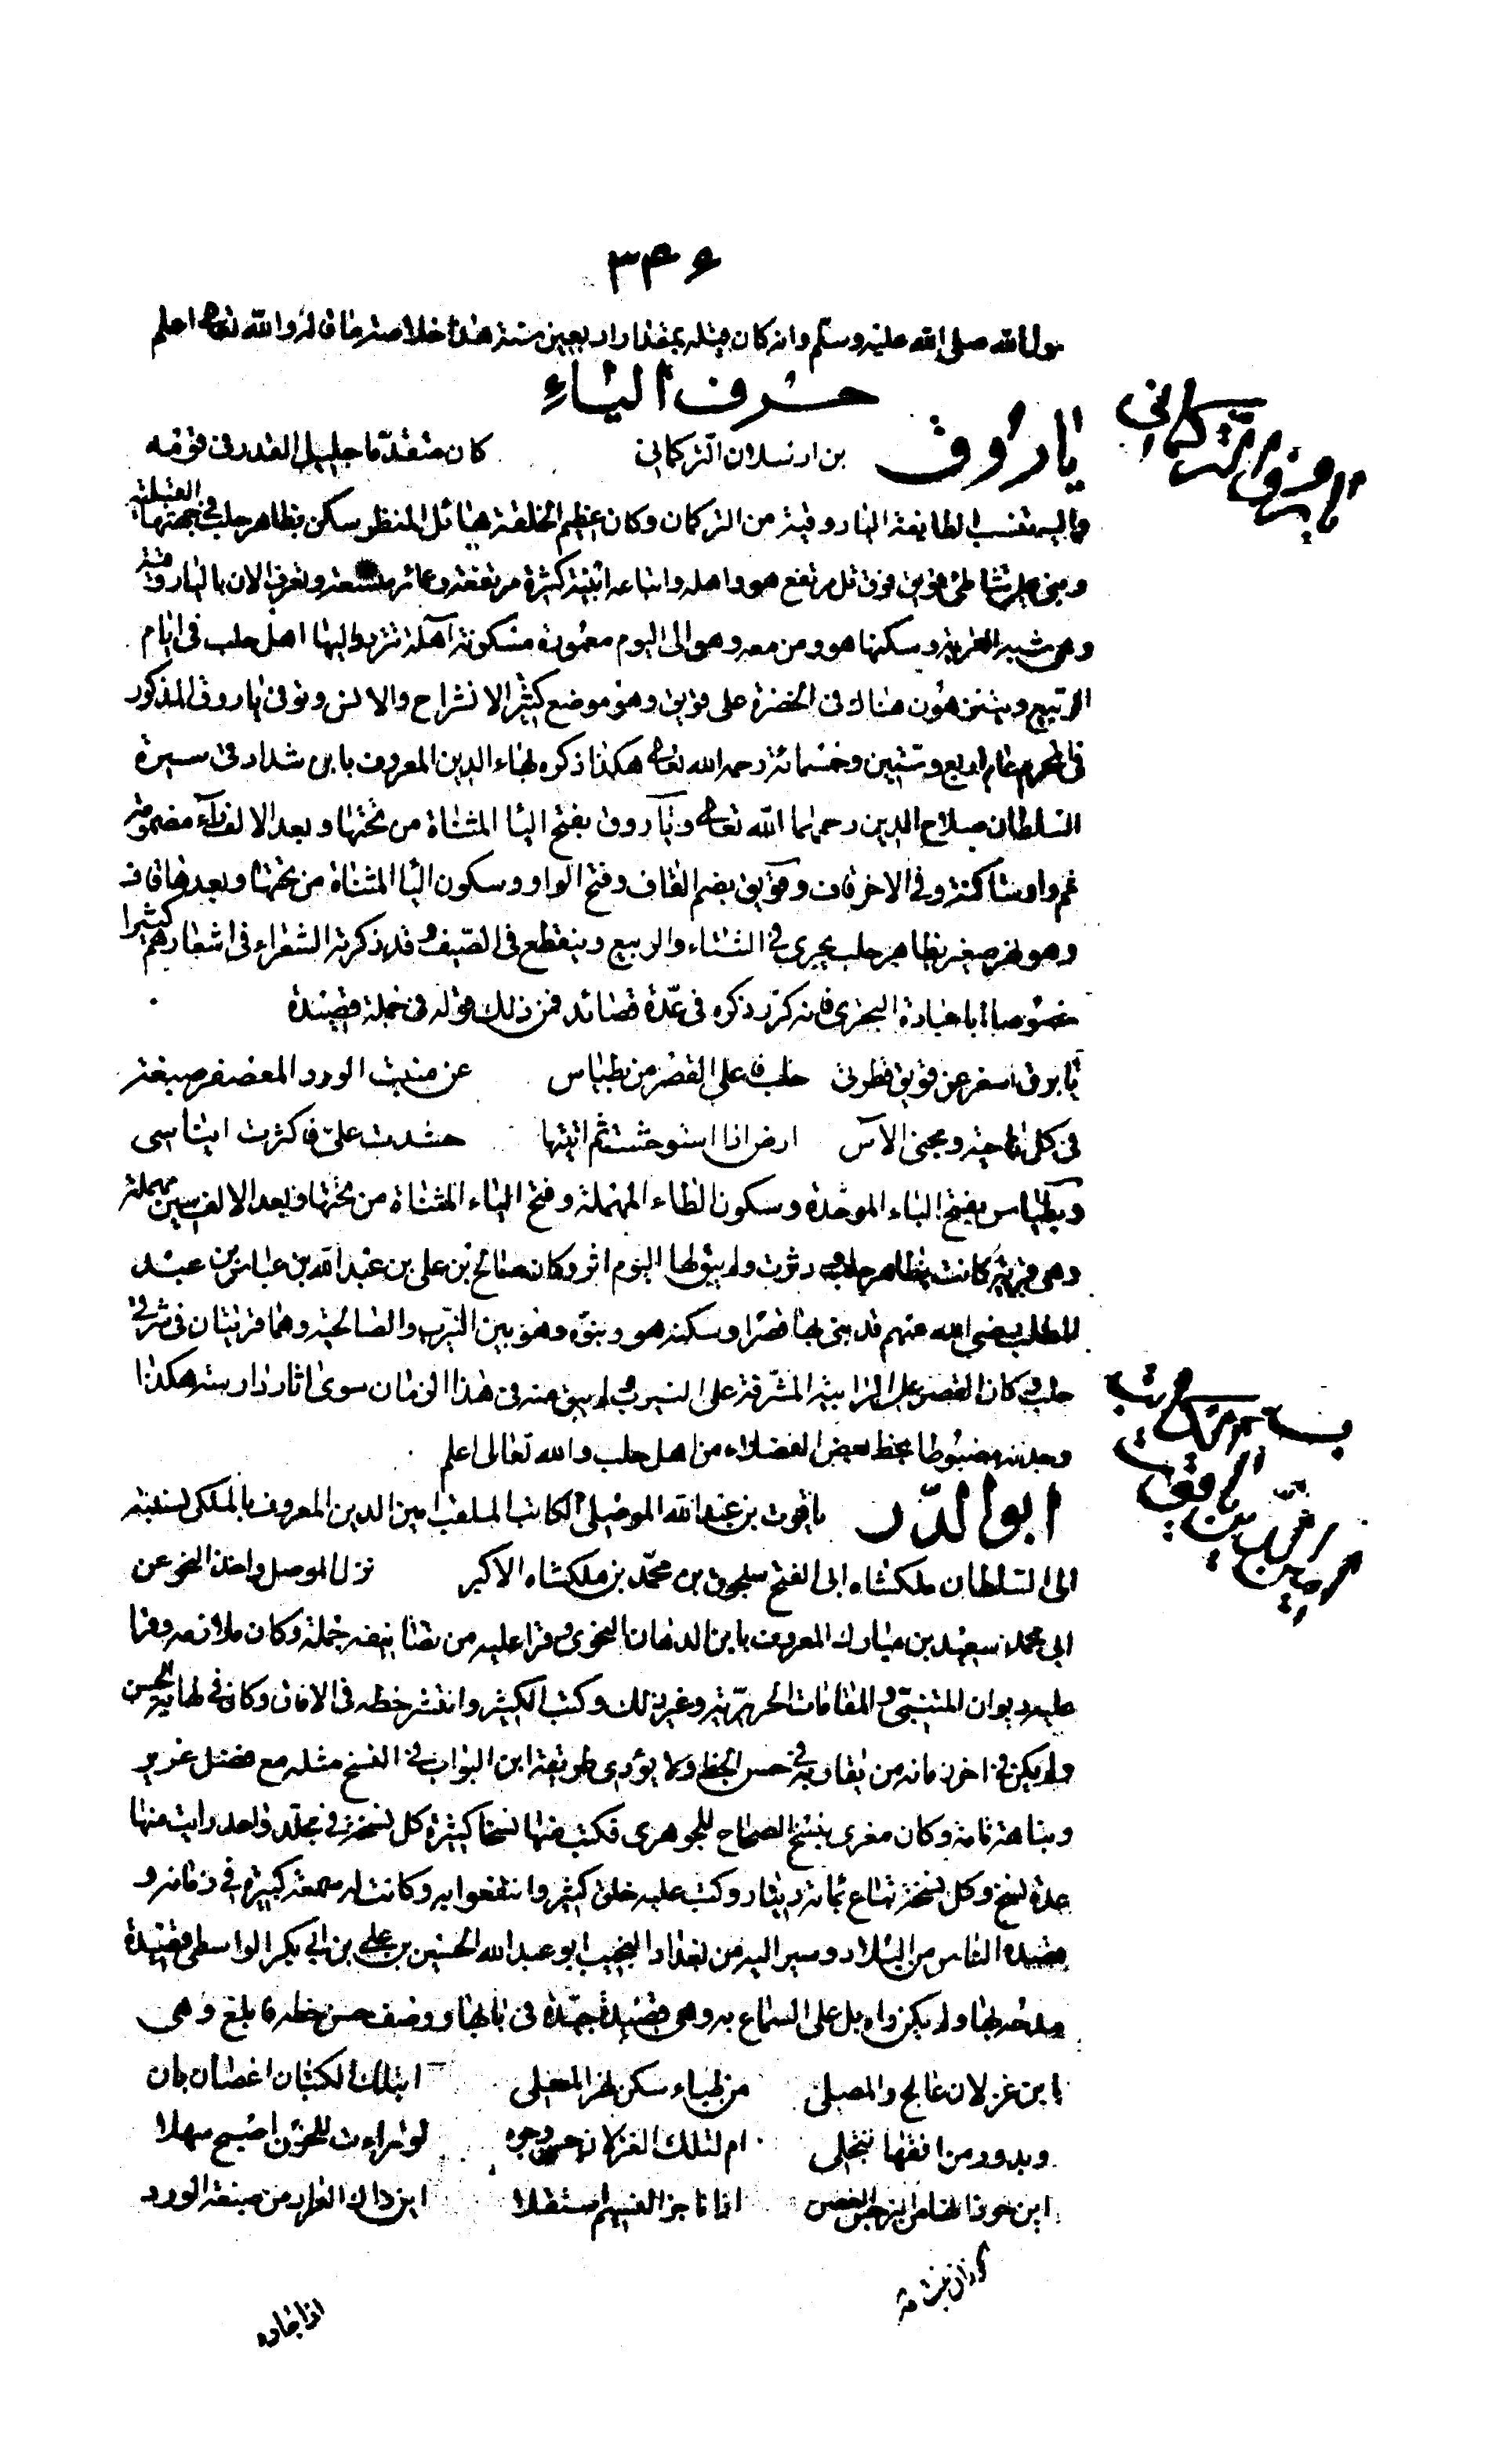 ٣٣٤
سول الله صلى الله عليه وسلم وانه كان قبله بمقدار اربعين سنة هذا خلاصة ما قاله والله تعالى اعلم
حرف الياء
ياروق بن ارسلان التركماني كان متقدما جليل القدر في قومه
واليه تنسب الطايفة الياروقية من التركمان وكان عظيم الخلقة هائل المنظر سكن بظاهر حلب في جهتها القبلية
وبنى على شاطئ قويق فوق تل مرتفع هو واهله واتباعه ابنية كثيرة مرتفعة وعمائر متسعة وتعرف الان بالياروقية
وهى شبيه القرية وسكنها هو ومن معه وهى الى اليوم معمورة مسكونة آهلة تتردد اليها اهل حلب في ايام
الربيع ويتنزهون هناك في الخضرة على قويق وهو موضع كثير الانشراح والانس وتوفى ياروق المذكور
في المحرم عام اربع وستين وخمسمائة رحمه الله تعالى هكذا ذكره بهاء الدين المعروف بابن شداد في سيرة
السلطان صلاح الدين رحمهما الله تعالى وياروق بفتح اليا المثناة من تحتها وبعد الالف راء مضمومة
ثم واو ساكنة وفي الاخر قاف وقويق بضم القاف وفتح الواو وسكون اليا المثناة من تحتها وبعدها قاف
وهو نهر صغير بظاهر حلب يجرى في الشتاء والربيع وينقطع في الصيف وقد ذكرته الشعراء في اشعارهم كثيرا
خصوصا ابا عبادة البحترى فانه كرر ذكره في عدة قصائد فمن ذلك قوله في جملة قصيدة
يا برق اسفر عن قويق فطرتى حلب فاعلى القصر من بطياس عن منبت الورد المعصفر صبغه
في كل ناحية ومجنى الآس ارض اذا استوحشت ثم اتيتها حشدت على فاكثرت ايناسى
وبطياس بفتح الباء الموحدة وسكون الطاء المهملة وفتح الياء المثناة من تحتها وبعد الالف سين مهملة
وهى قرية كانت بظاهر حلب ودثرت ولم يبق لها اليوم اثر وكان صالح بن على بن عبد الله بن عباس بن عبد
المطلب رضى الله عنهم قد بنى بها قصرا وسكنه هو وبنوه وهو بين النيرب والصالحية وهما قريتان في شرقي
حلب وكان القصر على الرابية المشرفة على النيرب ولم يبق منه في هذا الزمان سوى اثار دارسة هكذا
وجدته مضبوطا بخط بعض الفضلاء من اهل حلب والله تعالى اعلم
ابو الدر ياقوت بن عبد الله الموصلى الكاتب الملقب امين الدين المعروف بالملكى نسبته
الى السلطان ملكشاه ابى الفتح سلجوق بن محمد بن ملكشاه الاكبر نزل الموصل واخذ النحو عن
ابى محمد سعيد بن مبارك المعروف بابن الدهان النحوى وقرا عليه من تصانيفه جملة وكان ملازمه وقرا
عليه ديوان المتنبى والمقامات الحريرية وغير ذلك وكتب الكثير وانتشر خطه في الافاق وكان في نهاية الحسن
ولم يكن في اخر زمانه من يقاربه في حسن الخط ولا يؤدى طريقة ابن البواب في النسخ مثله مع فضل غزير
ونباهة تامة وكان مغرى بنسخ الصحاح للجوهرى فكتب منها نسخا كثيرة كل نسخة في مجلد واحد رايت منها
عدة نسخ وكل نسخة تباع بمائة دينار وكتب عليه خلق كثير وانتفعوا به وكانت له سمعة كبيرة في زمانه و
قصده الناس من البلاد وسير اليه من بغداد النجيب ابو عبد الله الحسين بن على بن ابى بكر الواسطى قصيدة
مدحه بها ولم يكن راه بل على السماع به وهى قصيدة جيدة في بابها ووصف حسن خطه فابلغ وهى
اين غزلان عالج والمصلى من ظباء سكن نهر المعلى ابتلك الكثبان اغصان بان
وبدور من افقها تتجلى ام لتلك الغزلان حسن وجوه لو تراءت للحزن اصبح سهلا
اين حوذانها من النرجس الغض اذا ما جز النسيم استقلا اين ذاك العرار من صبغة الورد
اذا جاده
ياروق التركماني
ياقوت
امين الدين